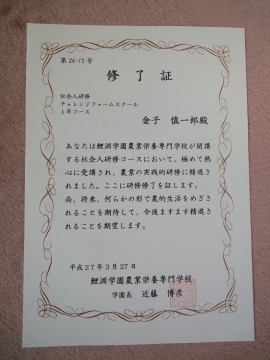 第26-15号
修了証
社会人研修
チャレンジファームスクール
1年コース
金子 慎一郎殿
あなたは鯉渕学園農業栄養専門学校が開講
する社会人研修コースにおいて、極めて熱
心に受講され、農業の実践的研修に精進さ
れました。ここに研修修了を証します。
尚、将来、何らかの形で農的生活をめざさ
れることを期待して、今後ますます精進さ
れることを期望します。
平成27年3月27日
鯉渕学園農業栄養専門学校
学園長 近藤 博彦